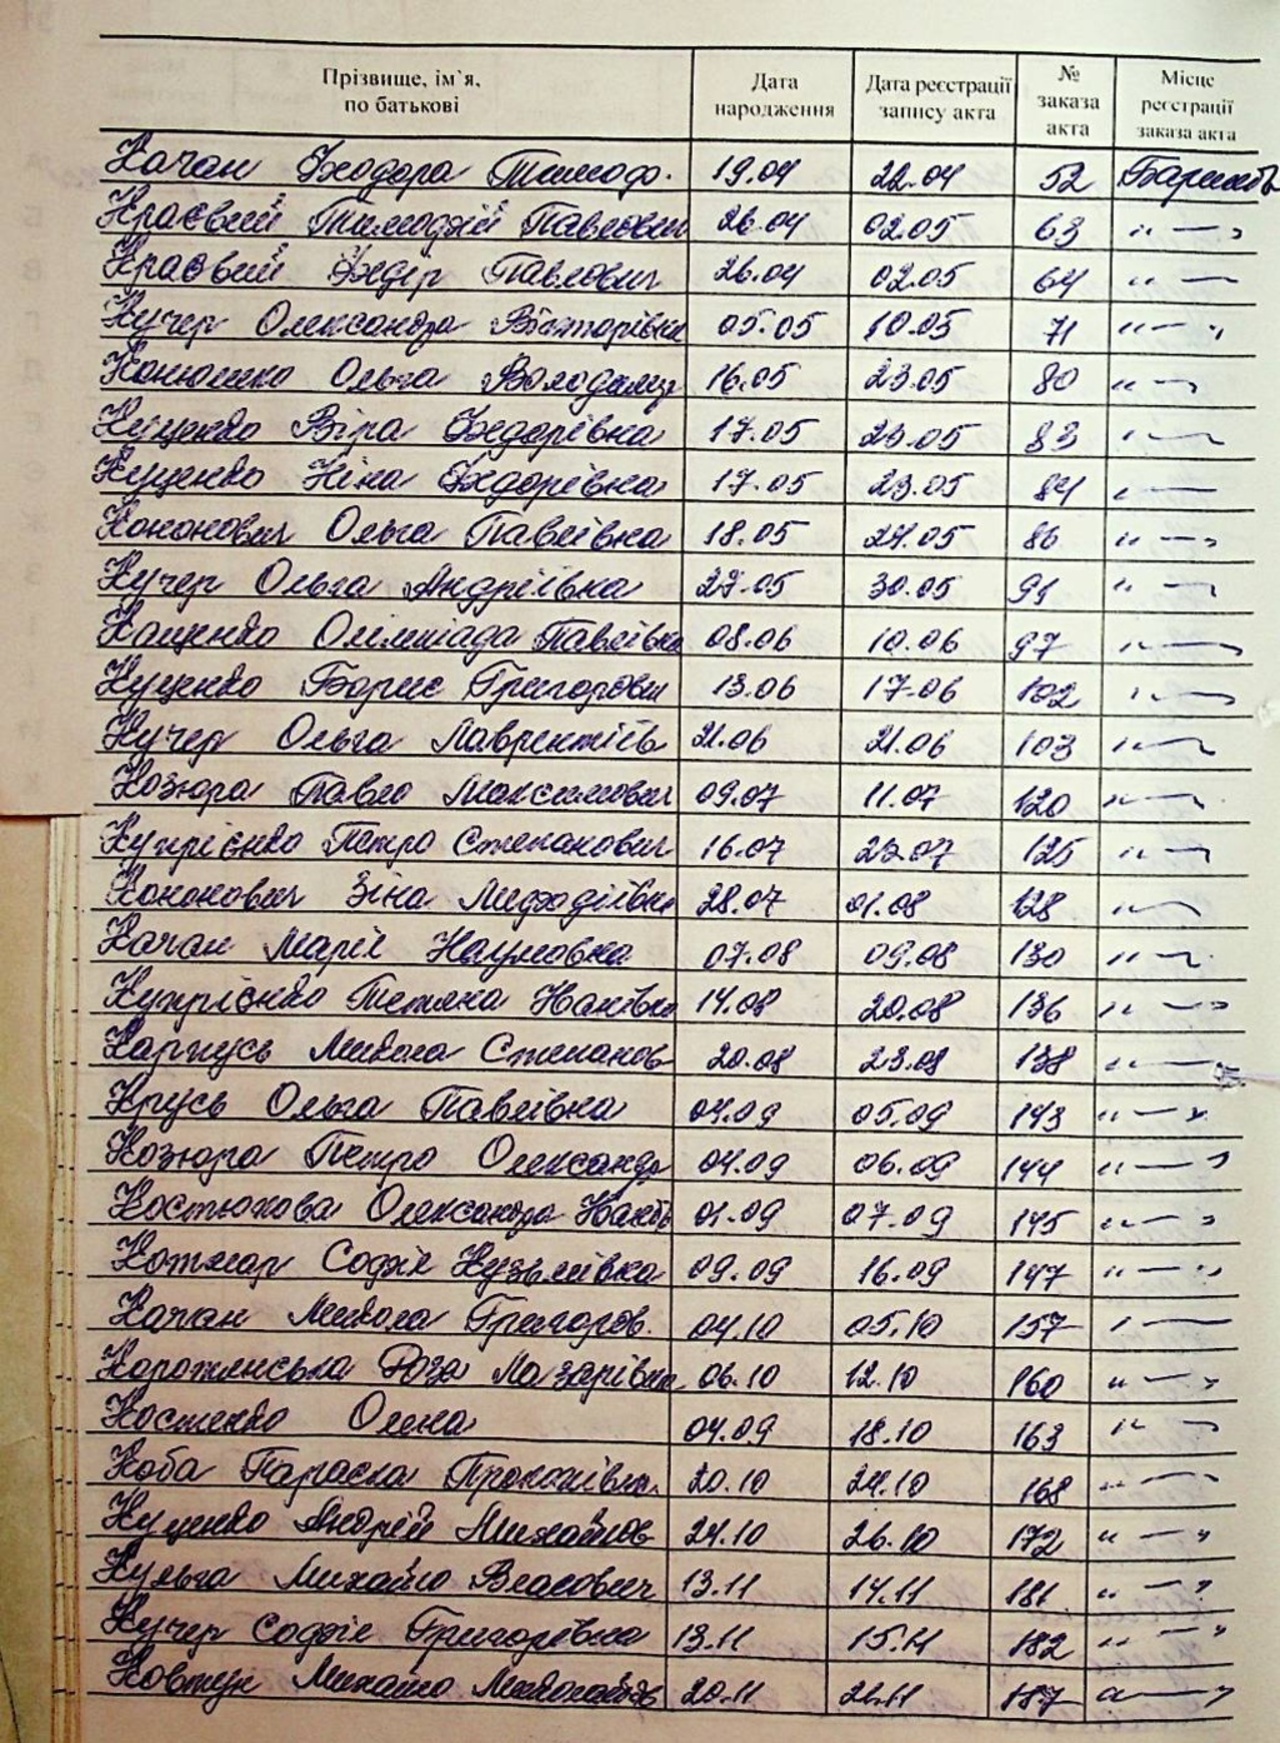 Прізвище, ім`я, по батькові Дата народження Дата реєстрації запису акта № заказа акта Місце реєстрації заказа акта
Качан Федора Тимоф. 19.04 22.04 52
Краєвий Тимофій Павлович 26.04 02.05 63 " — "
Краєвий Федір Павлович 26.04 02.05 64 " —
Кучер Олександра Вікторівна 05.05 10.05 71 " — "
Конюшко Ольга Володимир 16.05 23.05 80 " — "
Куценко Віра Федорівна 17.05 23.05 83 " —
Куценко Ніна Федорівна 17.05 23.05 84 " —
Кононович Ольга Павлівна 18.05 24.05 86 " — "
Кучер Ольга Андріївна 27.05 30.05 91 " — "
Кащенко Олімпіада Павлівна 08.06 10.06 97 " — "
Куценко Борис Григорович 13.06 17.06 102 " — "
Кучер Ольга Лаврентіїв 21.06 21.06 103 " — "
Козюра Павло Максимович 09.07 11.07 120 " — "
Купрієнко Петро Степанович 16.07 23.07 125 " — "
Кононович Зіна Мефодіївна 28.07 01.08 128 " —
Качан Марія Наумовна 07.08 09.08 130 " — "
Купрієнко Тетяна Іванівна 14.08 20.08 136 " — "
Карпусь Микола Степанов 20.08 23.08 138 " — "
Крусь Ольга Павлівна 04.09 05.09 143 " — "
Козюра Петро Олександр 04.09 06.09 144 " — "
Костюкова Олександра Іванів 01.09 07.09 145 " — "
Котляр Софія Кузьмівна 09.09 16.09 147 " — "
Качан Микола Григоров. 04.10 05.10 157 " —
Роза Лазарівна 06.10 12.10 160 " — "
Костенко Олена 04.09 18.10 163 " — "
Коба Параска Прокопівна 20.10 24.10 168 " — "
Куценко Андрій Михайлов 24.10 26.10 172 " — "
Кульга Михайло Власович 13.11 14.11 181 " — "
Кучер Софія Григорівна 13.11 15.11 182 " — "
Ковтун Михайло 20.11 21.11 187 " — "